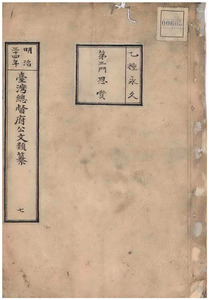 明治
三十四年
臺灣總督府公文類纂
七
乙種永久
第三門恩賞